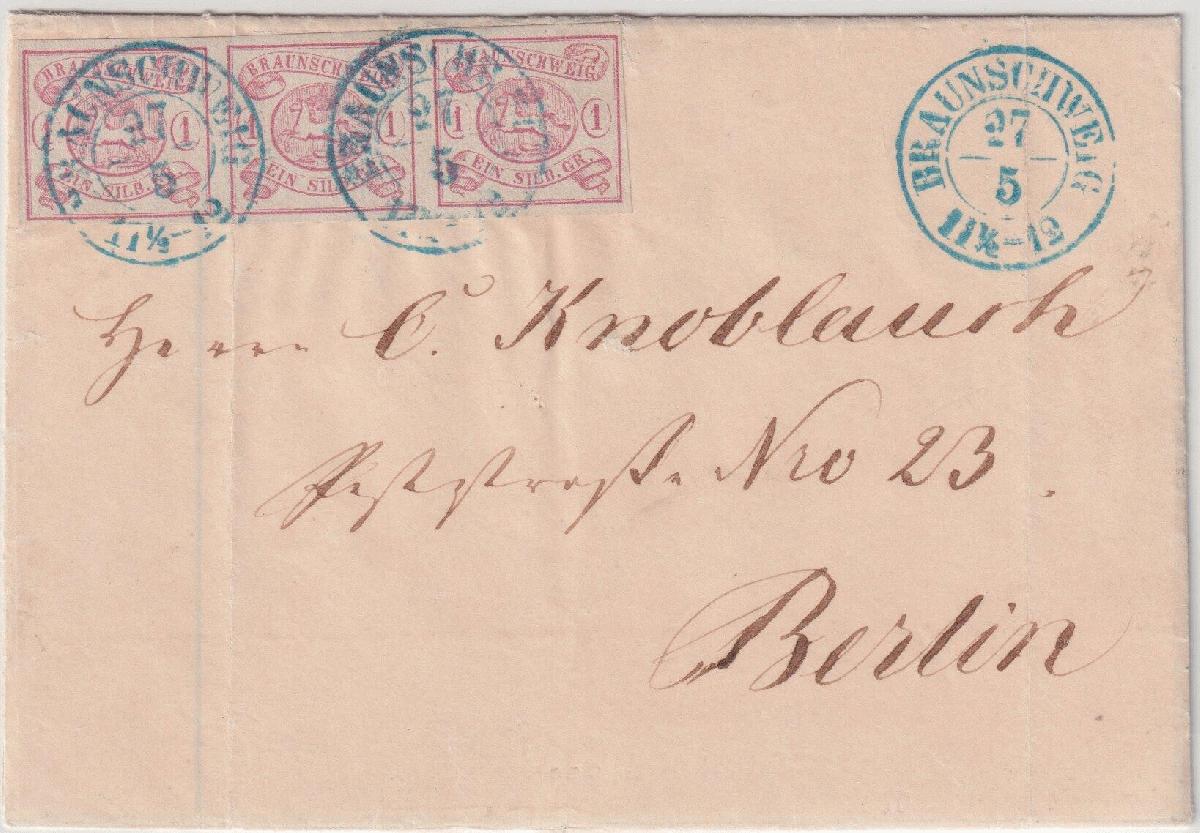 BRAUNSCHWEIG
1
EIN SILB. GR.
BRAUNSCHWEIG
1
EIN SILB. GR.
BRAUNSCHWEIG
1 1
EIN SILB. GR.
BRAUNSCHWEIG
27
5
11½-12
BRAUNSCHWEIG
27
5
BRAUNSCHWEIG
27
5
11½-12
Herrn C. Knoblauch
Poststraße Nro 23.
Berlin